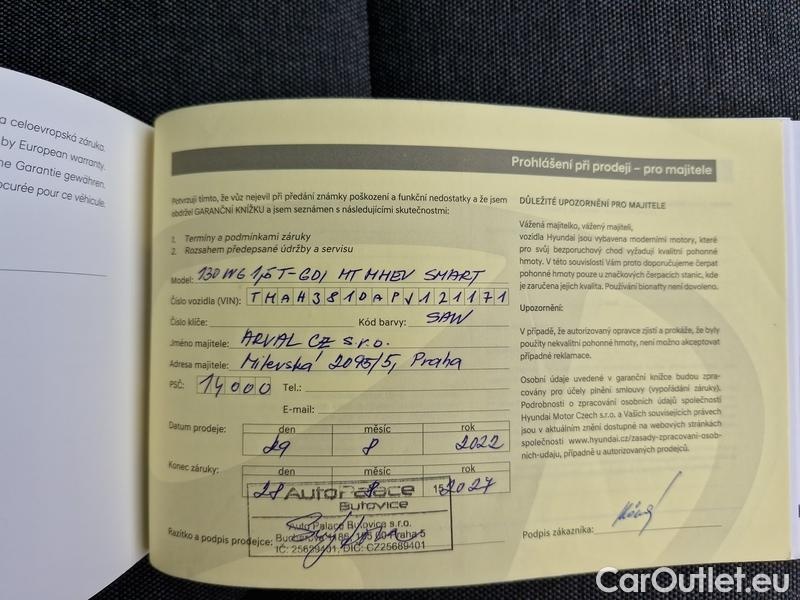 a celoevropská záruka.
by European warranty.
ne Garantie gewähren.
ocurée pour ce véhicule.
Prohlášení při prodeji – pro majitele
Potvrzuji tímto, že vůz nejevil při předání známky poškození a funkční nedostatky a že jsem
obdržel GARANČNÍ KNÍŽKU a jsem seznámen s následujícími skutečnostmi:
1. Termíny a podmínkami záruky
2. Rozsahem předepsané údržby a servisu
Model: I30 WG 1,5 T-GDI MT MHEV SMART
Číslo vozidla (VIN): TMAH3810APJ121171
Číslo klíče: Kód barvy: SAW
Jméno majitele: ARVAL CZ s.r.o.
Adresa majitele: Milevská 2095/5, Praha
PSČ: 14000 Tel.:
E-mail:
Datum prodeje: den měsíc rok
29 8 2022
Konec záruky: den měsíc rok
28 8 2027
AutoPalace
Butovice
Auto Palace Butovice s.r.o.
Razítko a podpis prodejce:
Praha 5
DŮLEŽITÉ UPOZORNĚNÍ PRO MAJITELE
Vážená majitelko, vážený majiteli,
vozidla Hyundai jsou vybavena moderními motory, které
pro svůj bezporuchový chod vyžadují kvalitní pohonné
hmoty. V této souvislosti Vám proto doporučujeme čerpat
pohonné hmoty pouze u značkových čerpacích stanic, kde
je zaručena jejich kvalita. Používání bionafty není dovoleno.
Upozornění:
V případě, že autorizovaný opravce zjistí a prokáže, že byly
použity nekvalitní pohonné hmoty, není možno akceptovat
případné reklamace.
Osobní údaje uvedené v garanční knížce budou zpra-
covány pro účely plnění smlouvy (vypořádání záruky).
Podrobnosti o zpracování osobních údajů společností
Hyundai Motor Czech s.r.o. a Vašich souvisejících právech
jsou v aktuálním znění dostupné na webových stránkách
společnosti www.hyundai.cz/zasady-zpracovani-osob-
nich-udaju, případně u autorizovaných prodejců.
Podpis zákazníka:
CarOutlet.eu